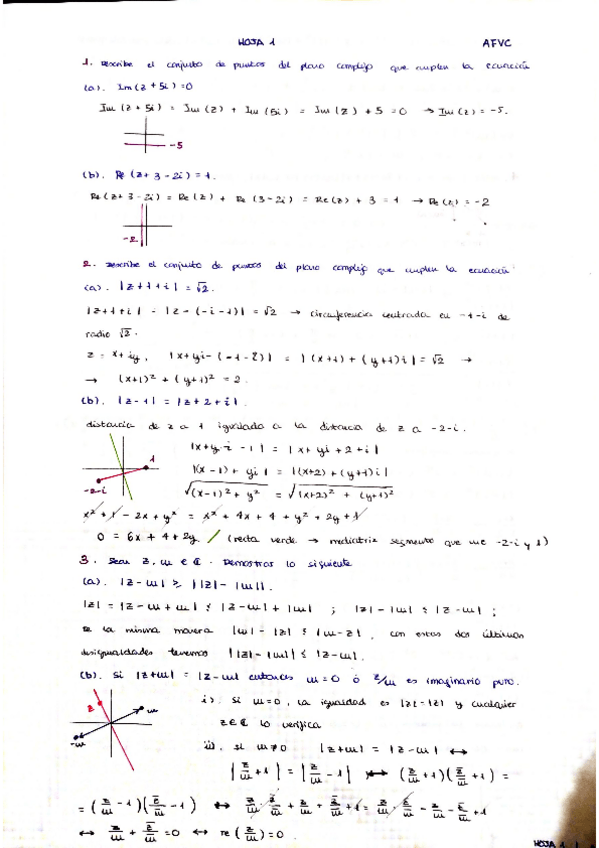 HOJA 1 AFVC
1. Describe el conjunto de puntos del plano complejo que cumplen la ecuación
(a). Im(z + 5i) = 0
Im (z + 5i) = Im (z) + Im (5i) = Im (z) + 5 = 0 → Im (z) = -5.
-5
(b). Re (z + 3 - 2i) = 1.
Re (z + 3 - 2i) = Re (z) + Re (3 - 2i) = Re(z) + 3 = 1 → Re (z) = -2
-2
2. Describe el conjunto de puntos del plano complejo que cumplen la ecuación
(a). |z + 1 + i| = √2.
|z + 1 + i| = |z - (-i - 1)| = √2 → circunferencia centrada en -1-i de
radio √2.
z = x + iy, |x + yi - (-1 - i)| = |(x+1) + (y+1)i| = √2 →
→ (x+1)² + (y+1)² = 2.
(b). |z - 1| = |z + 2 + i|.
distancia de z a 1 igualada a la distancia de z a -2-i.
1
-2-i
|x + y·i - 1| = |x + yi + 2 + i|
|(x - 1) + yi| = |(x+2) + (y+1)i|
√(x-1)² + y² = √(x+2)² + (y+1)²
x² + 1 - 2x + y² = x² + 4x + 4 + y² + 2y + 1
0 = 6x + 4 + 2y / (recta verde → mediatriz segmento que une -2-i y 1)
3. Sean z, w ∈ ℂ. Demostrar lo siguiente
(a). |z - w| ≥ ||z| - |w||.
|z| = |z - w + w| ≤ |z - w| + |w| ; |z| - |w| ≤ |z - w| ;
De la misma manera |w| - |z| ≤ |w - z|, con estas dos últimas
desigualdades tenemos ||z| - |w|| ≤ |z - w|.
(b). Si |z + w| = |z - w| entonces w = 0 ó z/w es imaginario puro.
z
w
-w
i) Si w = 0, la igualdad es |z| = |z| y cualquier
z ∈ ℂ lo verifica
ii) si w ≠ 0 |z + w| = |z - w| ↔
|z/w + 1| = |z/w - 1| ↔ (z/w + 1)(z̄/w̄ + 1) =
= (z/w - 1)(z̄/w̄ - 1) ↔ z/w z̄/w̄ + z/w + z̄/w̄ + 1 = z/w z̄/w̄ - z/w - z̄/w̄ + 1
↔ z/w + z̄/w̄ = 0 ↔ re (z/w) = 0
HOJA 1